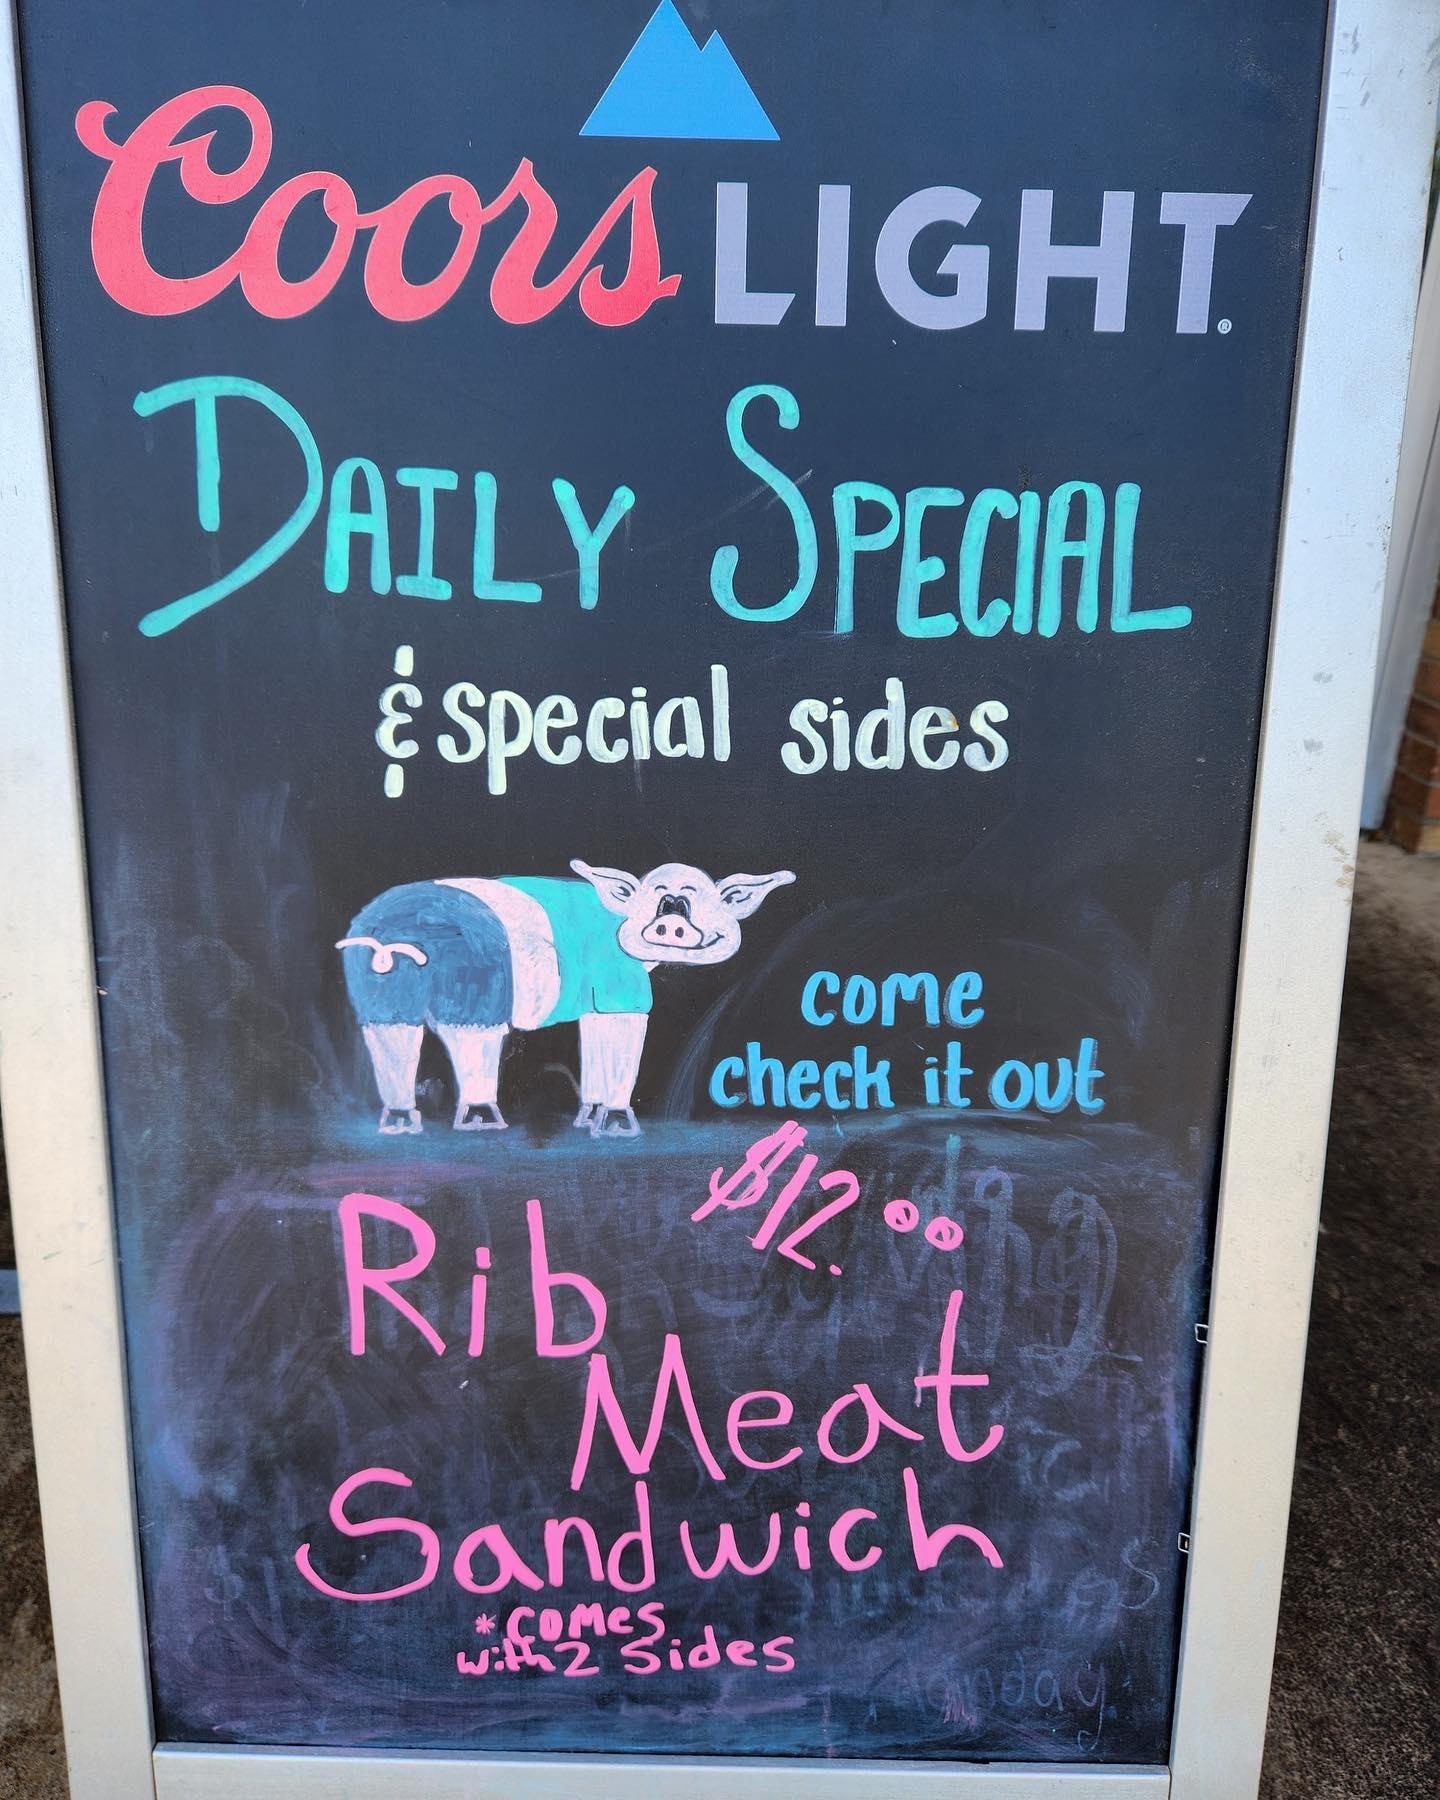 Coors LIGHT®
DAILY SPECIAL
& special sides
come
check it out
$12.00
Rib
Meat
Sandwich
*comes
with 2 sides